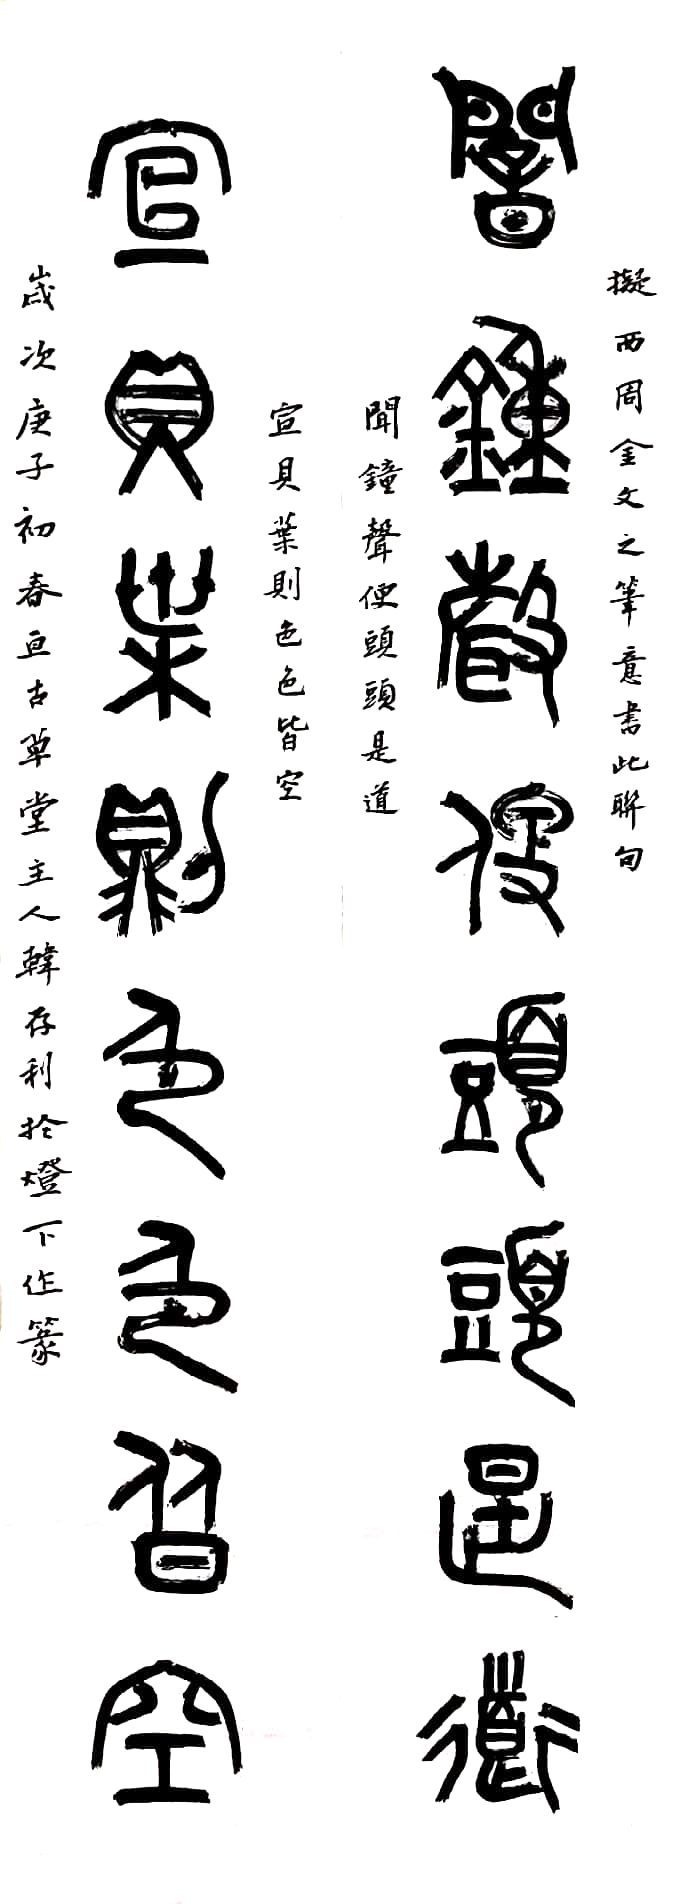 擬西周金文之筆意書此聯句
聞鐘聲便頭頭是道
聞鐘聲便頭頭是道
宣貝葉則色色皆空
宣貝葉則色色皆空
歲次庚子初春亙古草堂主人韓存利於燈下作篆